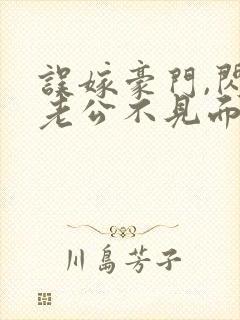 誤嫁豪門,閃
老公不見而
川島芳子